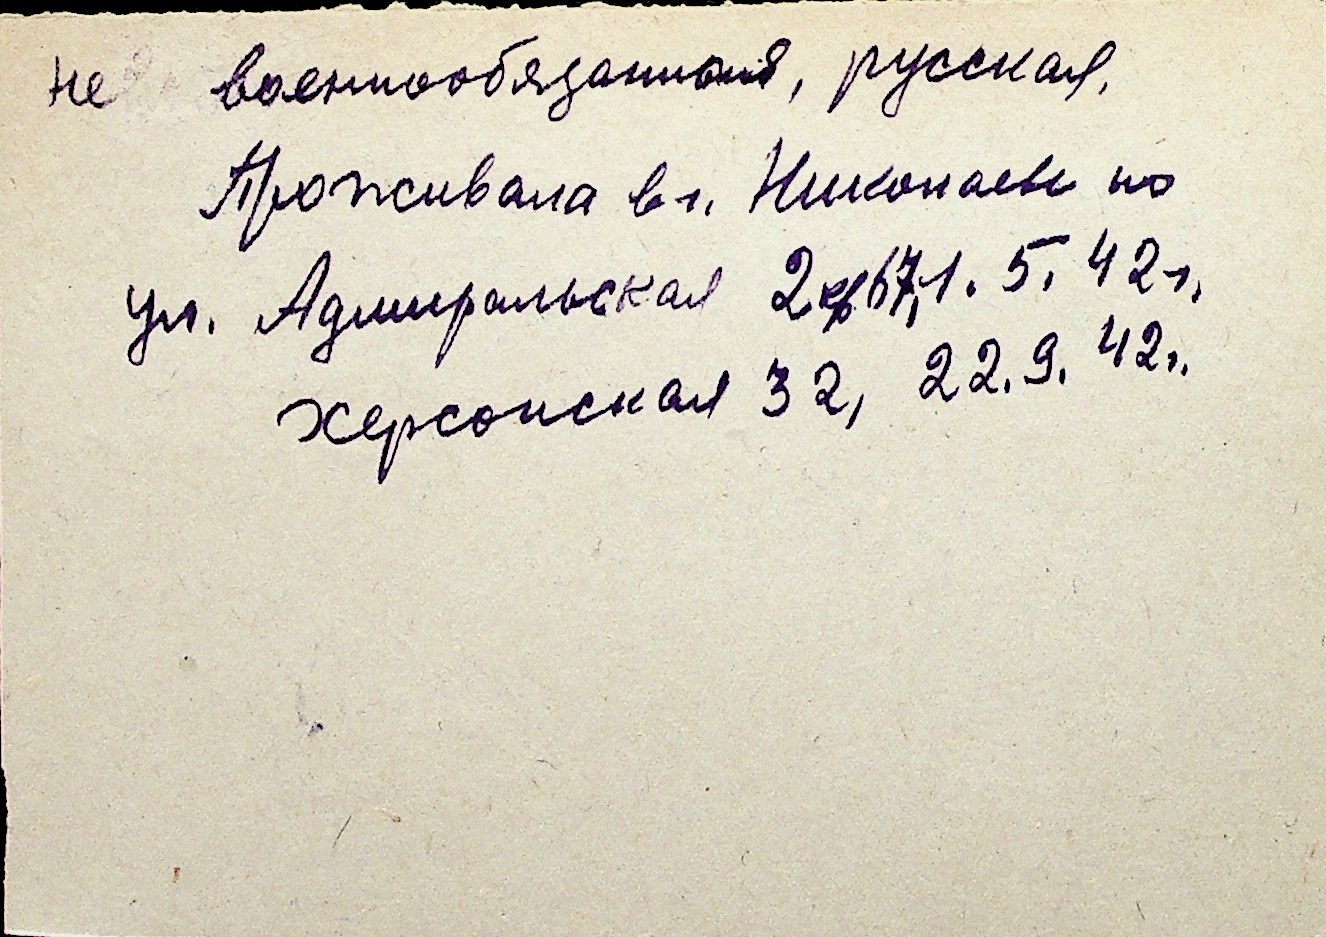 не военнообязанная, русская.
Проживала в г. Николаеве по
ул. Адмиральская 2 кв 67, 1. 5. 42 г.
Херсонская 32, 22. 9. 42 г.